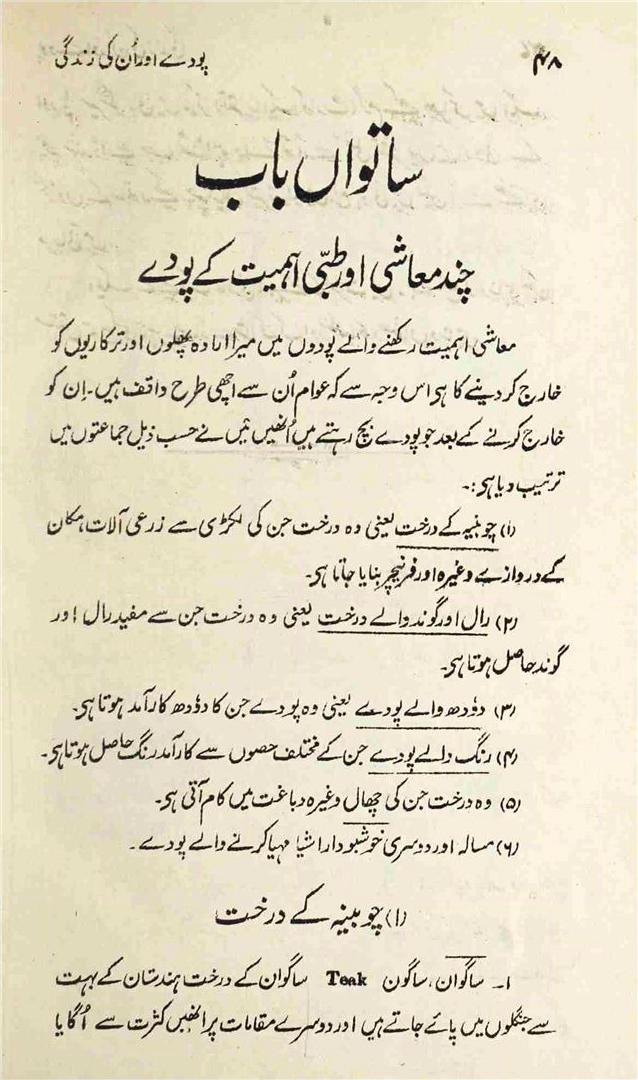 ۴۸
پودے اور اُن کی زندگی
ساتواں باب
چند معاشی اور طبّی اہمیت کے پودے
معاشی اہمیت رکھنے والے پودوں میں میرا ارادہ پھلوں اور ترکاریوں کو
خارج کر دینے کا ہی اس وجہ سے کہ عوام اُن سے اچھی طرح واقف ہیں۔ اِن کو
خارج کرنے کے بعد جو پودے بچ رہتے ہیں اُنھیں میں نے حسب ذیل جماعتوں میں
ترتیب دیا ہی:۔
(۱) چوبینہ کے درخت یعنی وہ درخت جن کی لکڑی سے زرعی آلات، مکان
کے دروازے وغیرہ اور فرنیچر بنایا جاتا ہی۔
(۲) رال اور گوند والے درخت یعنی وہ درخت جن سے مفید رال اور
گوند حاصل ہوتا ہی۔
(۳) دوٗدھ والے پودے یعنی وہ پودے جن کا دوٗدھ کارآمد ہوتا ہی۔
(۴) رنگ والے پودے جن کے مختلف حصوں سے کارآمد رنگ حاصل ہوتا ہی۔
(۵) وہ درخت جن کی چھال وغیرہ دباغت میں کام آتی ہی۔
(۶) مسالہ اور دوسری خوشبودار اشیا مہیا کرنے والے پودے۔
(۱) چوبینہ کے درخت
۱۔ ساگوان، ساگون Teak ساگوان کے درخت ہندستان کے بہت
سے جنگلوں میں پائے جاتے ہیں اور دوسرے مقامات پر انھیں کثرت سے اُگایا